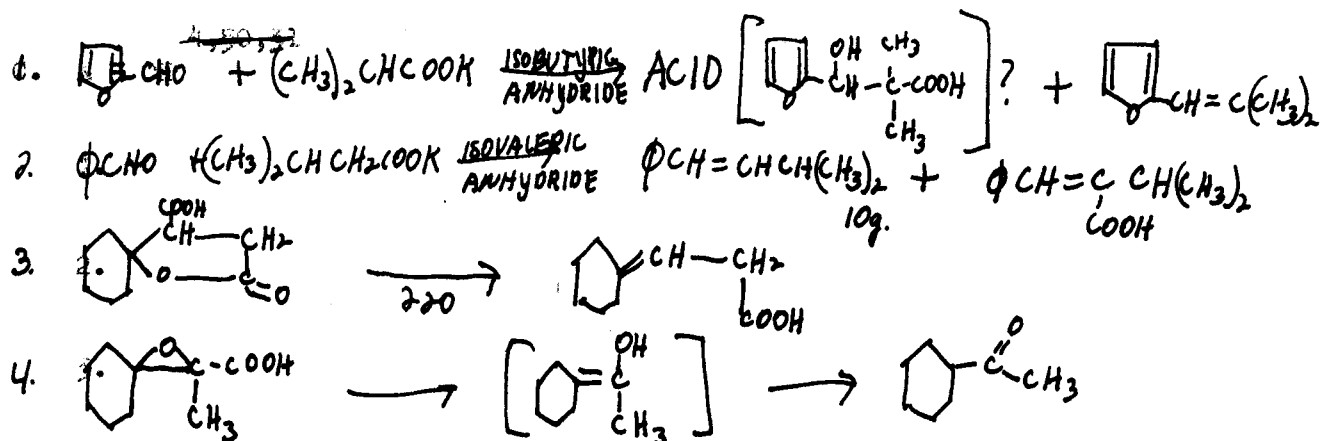 1. O CHO + (CH3)2CHCOOK ISOBUTYRIC ANHYDRIDE ACID [ O OH CH-C-COOH CH3 CH3 ] ? + O CH=C(CH3)2
2. ϕCHO +(CH3)2CHCH2COOK ISOVALERIC ANHYDRIDE ϕCH=CHCH(CH3)2 + ϕCH=C CH(CH3)2
10g. COOH
COOH
3. CH CH2 O C=O 220 CH-CH2
COOH
4. O C-COOH CH3 [ OH =C CH3 ] O C CH3